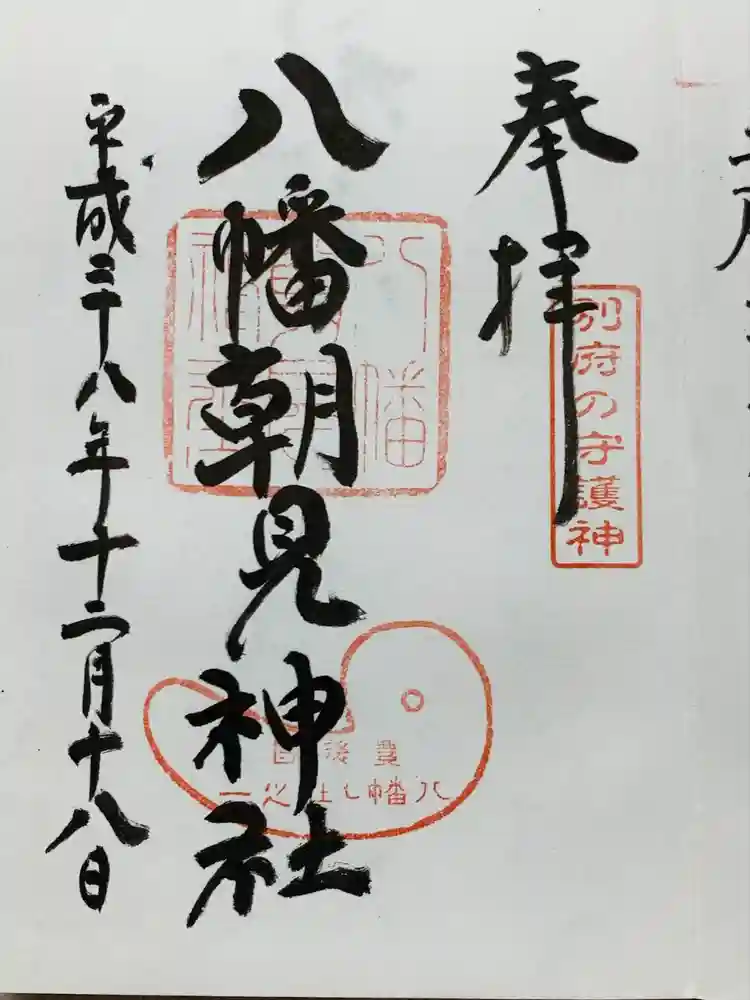 奉拝
別府の守護神
八幡朝見神社
八幡朝見神社
豊後国
八幡七社之一
平成三十八年十二月十八日